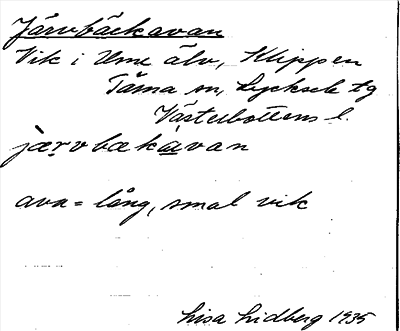 Järvbäckavan
Vik i Ume älv, Klippen
Tärna sn, Lycksele tg
Västerbottens l.
jærvbækàvan
ava = lång, smal vik
Lisa Lidberg 1935